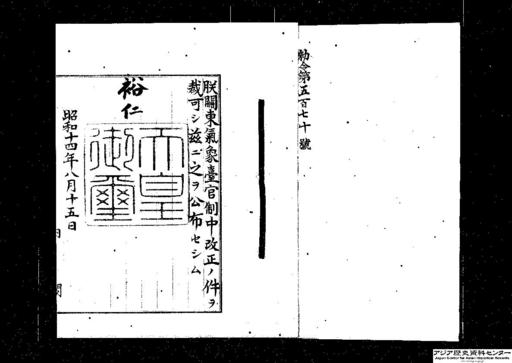 勅令第五百七十號
朕關東氣象臺官制中改正ノ件ヲ
裁可シ茲ニ之ヲ公布セシム
裕仁
天皇御璽
昭和十四年八月十五日
内閣
アジア歴史資料センター
Japan Center for Asian Historical Records